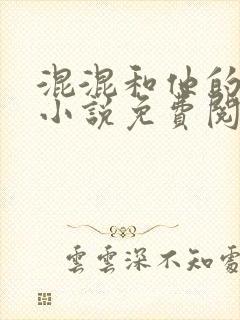 混混和他的
小說免費閱
雲雲深不知處